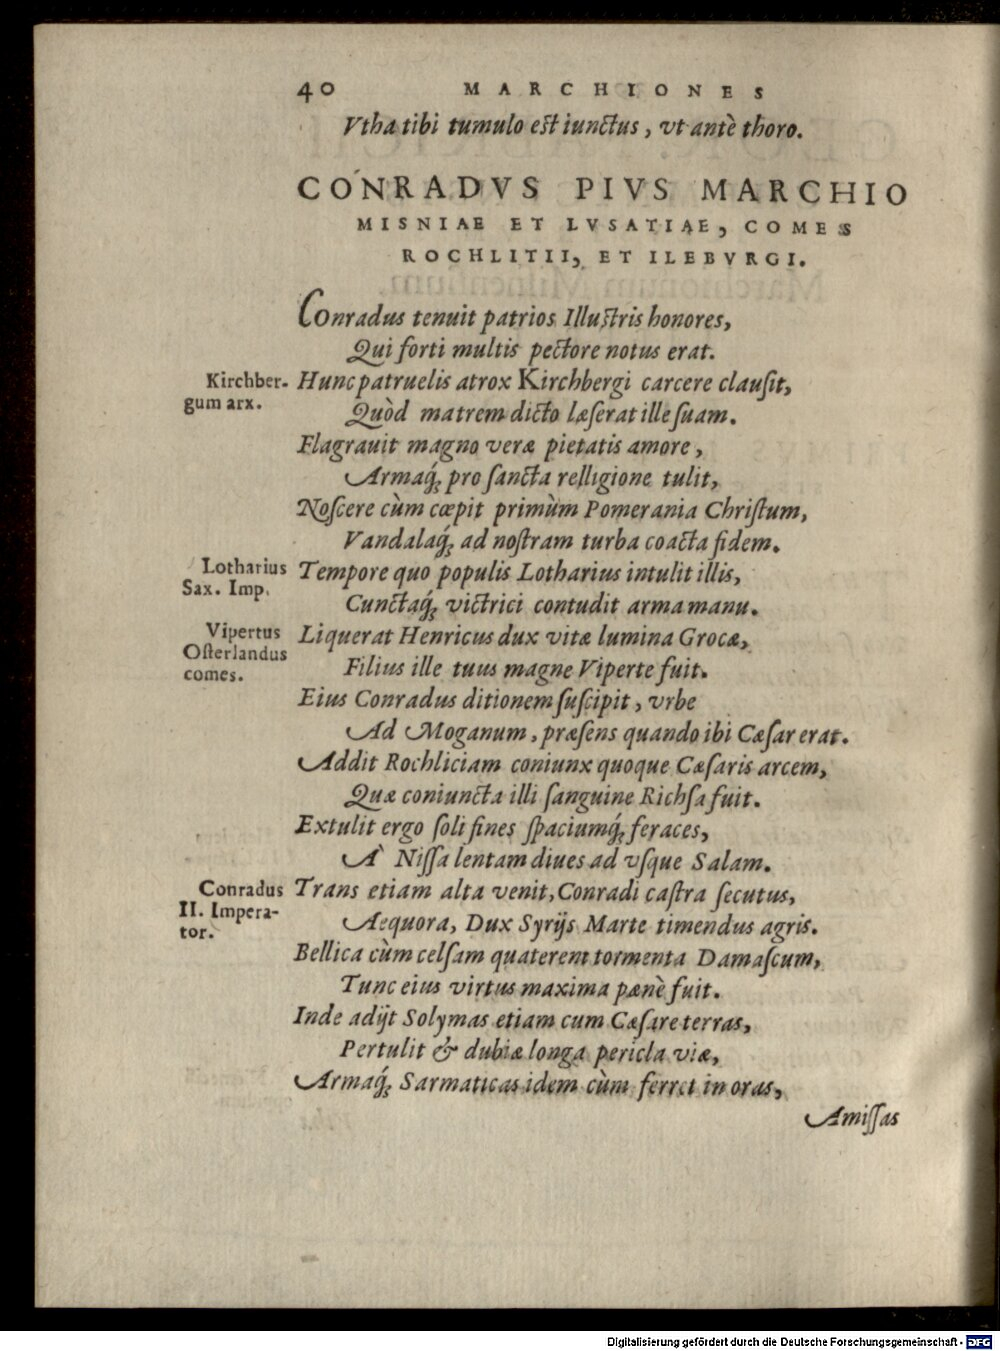 40 MARCHIONES
Vtha tibi tumulo est iunctus, vt antè thoro.
CONRADVS PIVS MARCHIO
MISNIAE ET LVSATIAE, COMES
ROCHLITII, ET ILEBVRGI.
Conradus tenuit patrios Illustris honores,
Qui forti multis pectore notus erat.
Kirchber-
gum arx.
Hunc patruelis atrox Kirchbergi carcere clausit,
Quòd matrem dicto læserat ille suam.
Flagrauit magno veræ pietatis amore,
Armaq́; pro sancta relligione tulit,
Noscere cùm cœpit primùm Pomerania Christum,
Vandalaq́; ad nostram turba coacta fidem.
Lotharius
Sax. Imp.
Tempore quo populis Lotharius intulit illis,
Cunctaq́; victrici contudit arma manu.
Vipertus
Osterlandus
comes.
Liquerat Henricus dux vitæ lumina Grocæ,
Filius ille tuus magne Viperte fuit.
Eius Conradus ditionem suscipit, vrbe
Ad Moganum, præsens quando ibi Cæsar erat.
Addit Rochliciam coniunx quoque Cæsaris arcem,
Quæ coniuncta illi sanguine Richsa fuit.
Extulit ergo soli fines spaciumq́; feraces,
À Nissa lentam diues ad vsque Salam.
Conradus
II. Impera-
tor.
Trans etiam alta venit, Conradi castra secutus,
Aequora, Dux Syrijs Marte timendus agris.
Bellica cùm celsam quaterent tormenta Damascum,
Tunc eius virtus maxima pænè fuit.
Inde adijt Solymas etiam cum Cæsare terras,
Pertulit & dubiæ longa pericla viæ,
Armaq́; Sarmaticas idem cùm ferret in oras,
Amissas
Digitalisierung gefördert durch die Deutsche Forschungsgemeinschaft - DFG